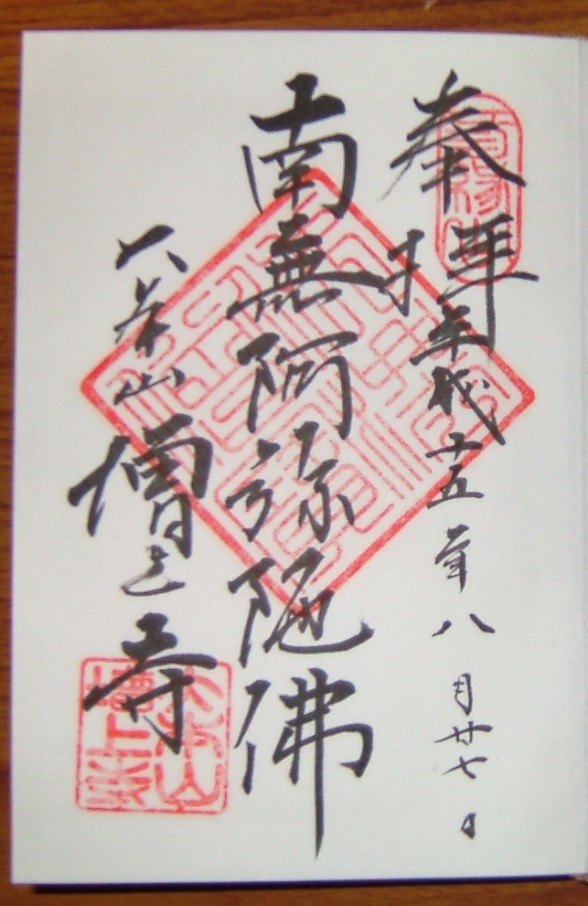 奉拝
成十五年八月廿七日
南無阿弥陀佛
大本山 増上寺
大本山
増上寺